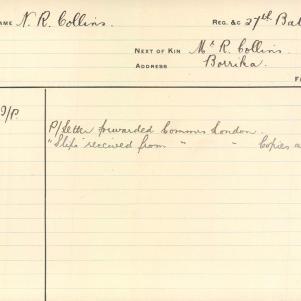 NAME N. R. Collins. REG. &C 27th Bat
NEXT OF KIN Mr R. Collins.
ADDRESS Borrika.
P/Letter forwarded Commrs London.
"Slips" received from " " Copies a